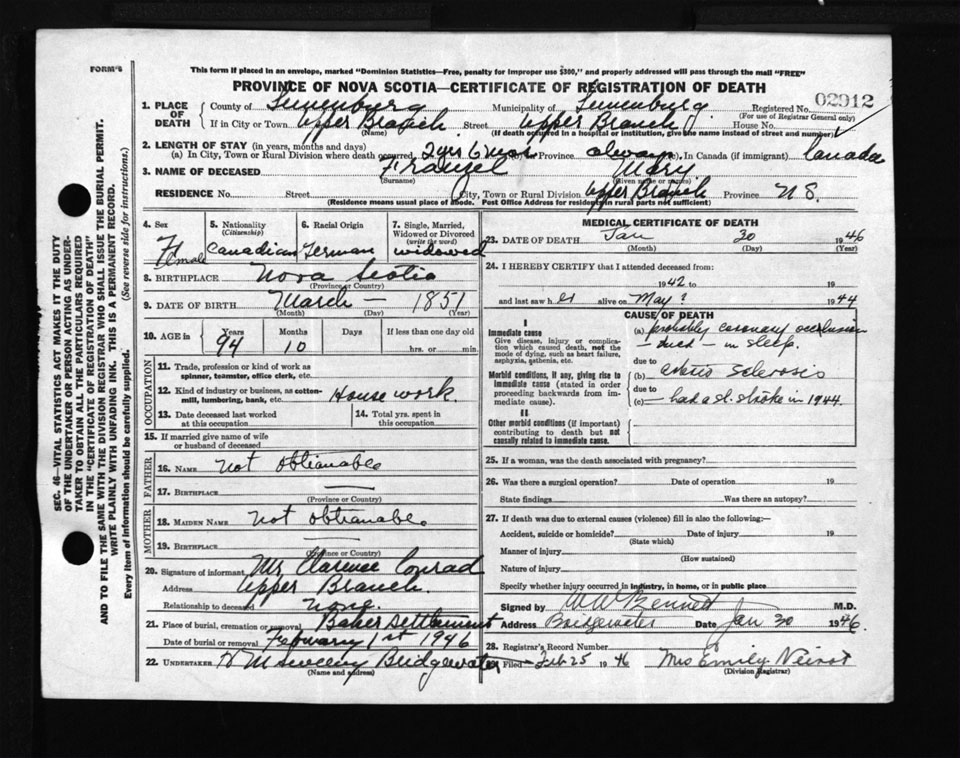 FORM
This form if placed in an envelope, marked "Dominion Statistics—Free, penalty for improper use $300," and properly addressed will pass through the mail "FREE"
PROVINCE OF NOVA SCOTIA—CERTIFICATE OF REGISTRATION OF DEATH
1. PLACE OF DEATH
County of Lunenburg Municipality of Lunenburg Registered No. 02912
(For use of Registrar General only)
If in City or Town Upper Branch Street Upper Branch House No.
(Name) (If death occurred in a hospital or institution, give its name instead of street and number)
2. LENGTH OF STAY (in years, months and days)
(a) In City, Town or Rural Division where death occurred 2 yrs 6 mos Province always In Canada (if immigrant) Canada
3. NAME OF DECEASED Frauzel Mary
(Surname) (Given name or names)
RESIDENCE No. Street City, Town or Rural Division Upper Branch Province N S.
(Residence means usual place of abode. Post Office Address for residents in rural parts not sufficient)
4. Sex Female
5. Nationality (Citizenship) Canadian
6. Racial Origin German
7. Single, Married, Widowed or Divorced (write the word) widowed
8. BIRTHPLACE Nova Scotia
(Province or Country)
9. DATE OF BIRTH March — 1851
(Month) (Day) (Year)
10. AGE in Years 94 Months 10 Days If less than one day old hrs. or min.
OCCUPATION
11. Trade, profession or kind of work as spinner, teamster, office clerk, etc.
12. Kind of industry or business, as cotton-mill, lumbering, bank, etc. House work.
13. Date deceased last worked at this occupation
14. Total yrs. spent in this occupation
15. If married give name of wife or husband of deceased
FATHER
16. NAME Not obtianable
17. BIRTHPLACE —
(Province or Country)
MOTHER
18. MAIDEN NAME Not obtianable.
19. BIRTHPLACE —
(Province or Country)
20. Signature of informant Mr Clarence Conrad
Address Upper Branch.
Relationship to deceased None.
21. Place of burial, cremation or removal Baker Settlement
Date of burial or removal Febuary 1st 1946
22. UNDERTAKER Sweeny Bridgewater
(Name and address)
MEDICAL CERTIFICATE OF DEATH
23. DATE OF DEATH Jan 30 1946
(Month) (Day) (Year)
24. I HEREBY CERTIFY that I attended deceased from:
1942 to 19
and last saw her alive on May ? 1944
CAUSE OF DEATH
I
Immediate cause
Give disease, injury or complication which caused death, not the mode of dying, such as heart failure, asphyxia, asthenia, etc.
(a) probably coronary occlusion
— died — in sleep.
due to
Morbid conditions, if any, giving rise to immediate cause (stated in order proceeding backwards from immediate cause).
(b) Sclerosis
due to
(c) — had a sl. stroke in 1944.
II
Other morbid conditions (if important) contributing to death but not causally related to immediate cause.
25. If a woman, was the death associated with pregnancy?
26. Was there a surgical operation? Date of operation 19
State findings Was there an autopsy?
27. If death was due to external causes (violence) fill in also the following:—
Accident, suicide or homicide? Date of injury 19
(State which)
Manner of injury
(How sustained)
Nature of injury
Specify whether injury occurred in industry, in home, or in public place
Signed by Bennett M.D.
Address Bridgewater Date Jan 30 1946.
28. Registrar's Record Number
Filed — Feb 25 1946 Mrs Emily
(Division Registrar)
SEC. 46—VITAL STATISTICS ACT MAKES IT THE DUTY
OF THE UNDERTAKER OR PERSON ACTING AS UNDER-
TAKER TO OBTAIN ALL THE PARTICULARS REQUIRED
IN THE "CERTIFICATE OF REGISTRATION OF DEATH"
AND TO FILE THE SAME WITH THE DIVISION REGISTRAR WHO SHALL ISSUE THE BURIAL PERMIT.
WRITE PLAINLY WITH UNFADING INK. THIS IS A PERMANENT RECORD.
Every item of information should be carefully supplied. (See reverse side for instructions.)